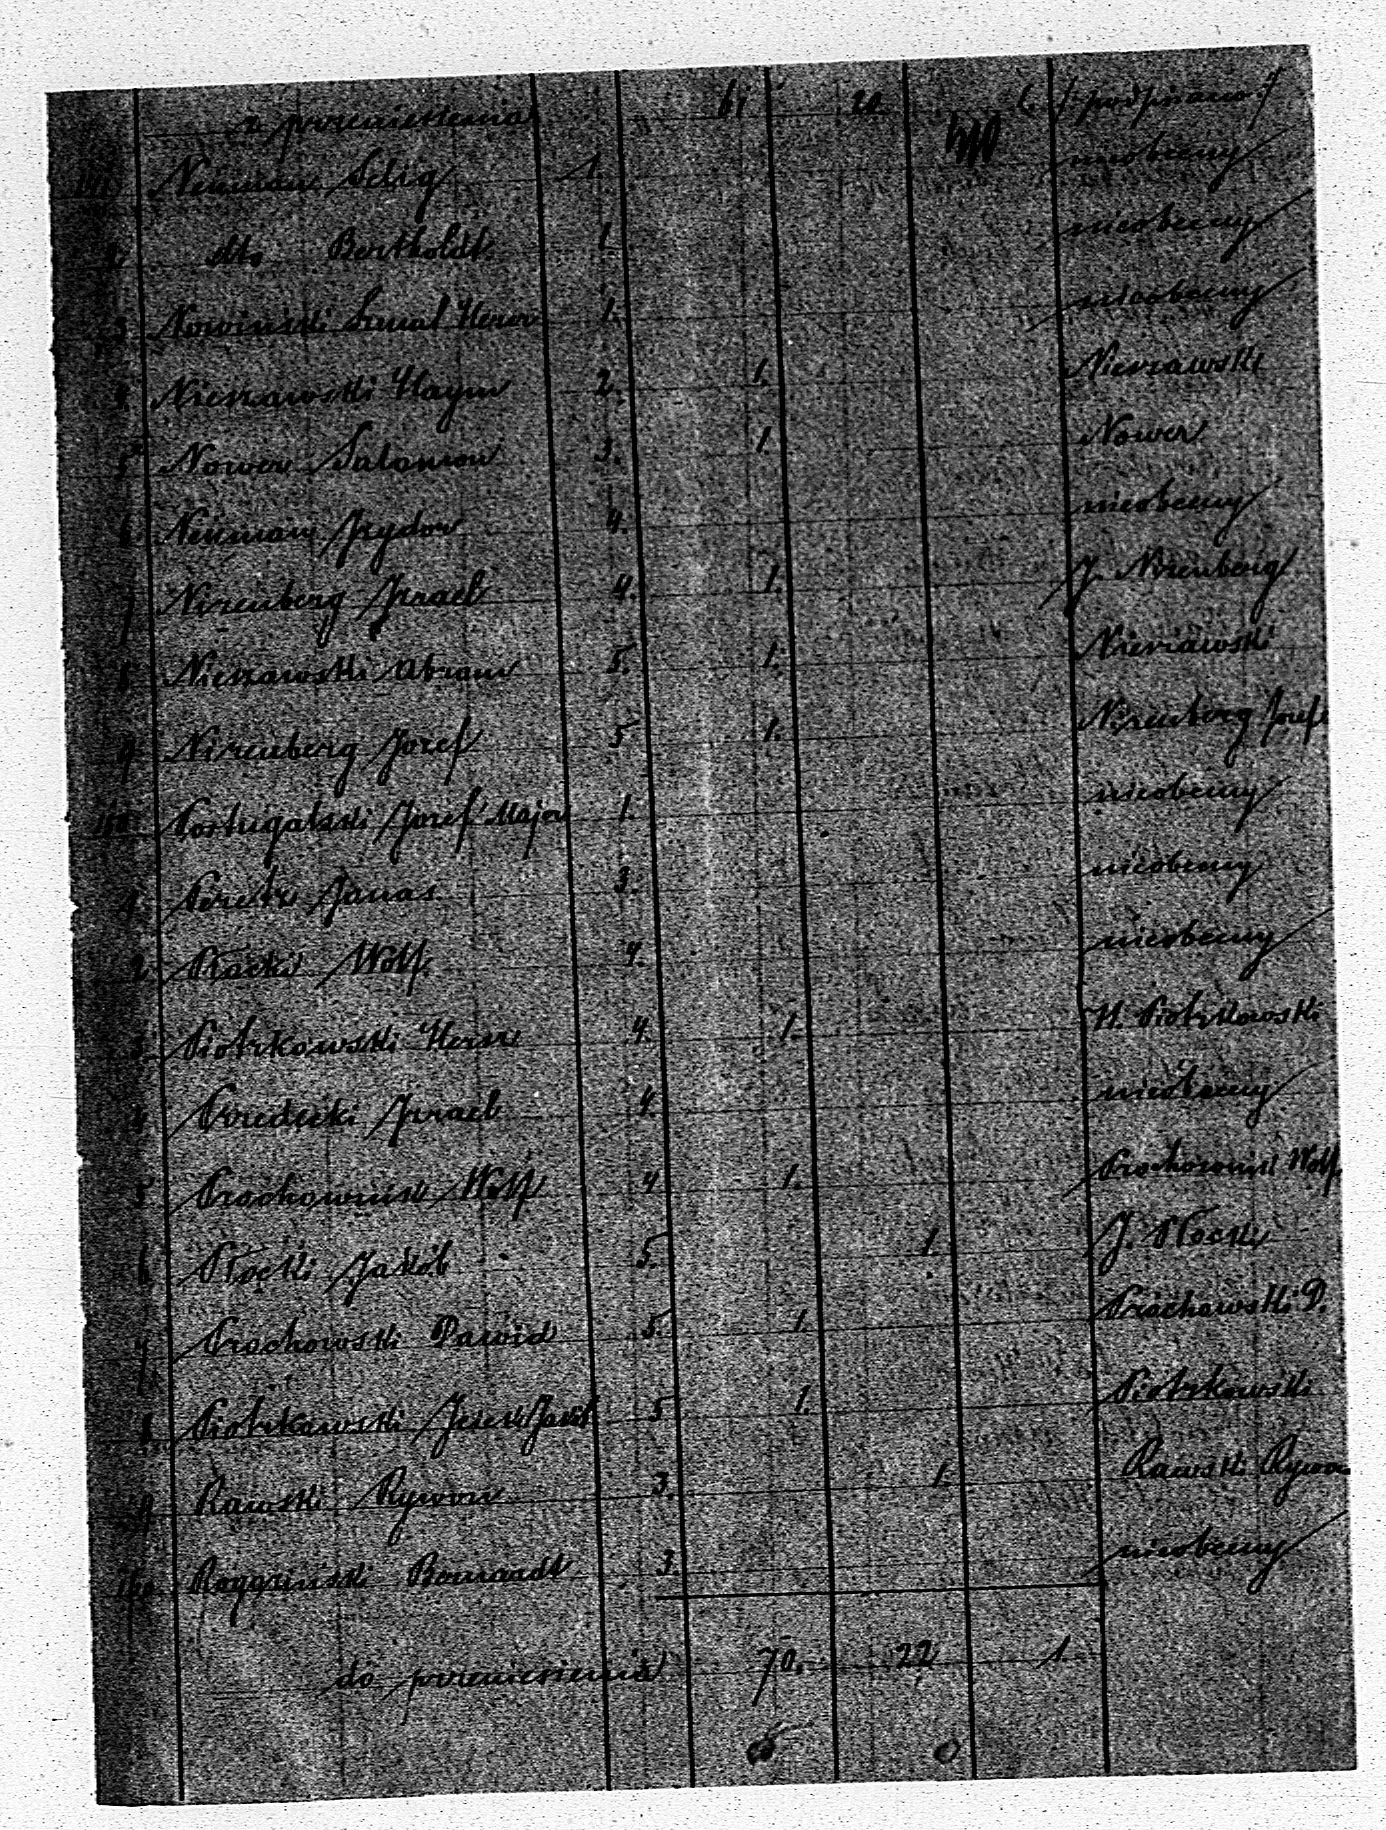 z przeniesienia 61 20 1 /:podpisano:/
141 Neuman Selig 1. nieobecny
2 dto Bertholdt 1. nieobecny
3 Nowinski Szmul Hersz 1. nieobecny
4 Nieszawski Haym 2. 1. Nieszawski
5 Nower Salomon 3. 1. Nower
6 Neuman Izydor 4. nieobecny
7 Nirenberg Izrael 4. 1. J. Nirenberg
8 Nieszawski Abram 5. 1. Nieszawski
9 Nirenberg Josef 5 1. Nirenberg Josef
150 Portugalski Josef Major 1. nieobecny
1 Peretz Janas 3. nieobecny
2 Płacki Wolf. 4. nieobecny
3 Piotrkowski Hersz 4. 1. H. Piotrkowski
4 Przedecki Izrael 4. nieobecny
5 Prochownik Wolf 4 1. Prochownik Wolf.
6 Płocki Jakób 5. 1. J. Płocki
7 Prochowski Dawid 5. 1. Prochowski D.
8 Piotrkowski Jakób 5 1. Piotrkowski
9 Rawski Rywon 3. 1. Rawski Rywon
160 Bernardt 3. nieobecny
do przeniesienia 70. 22 1